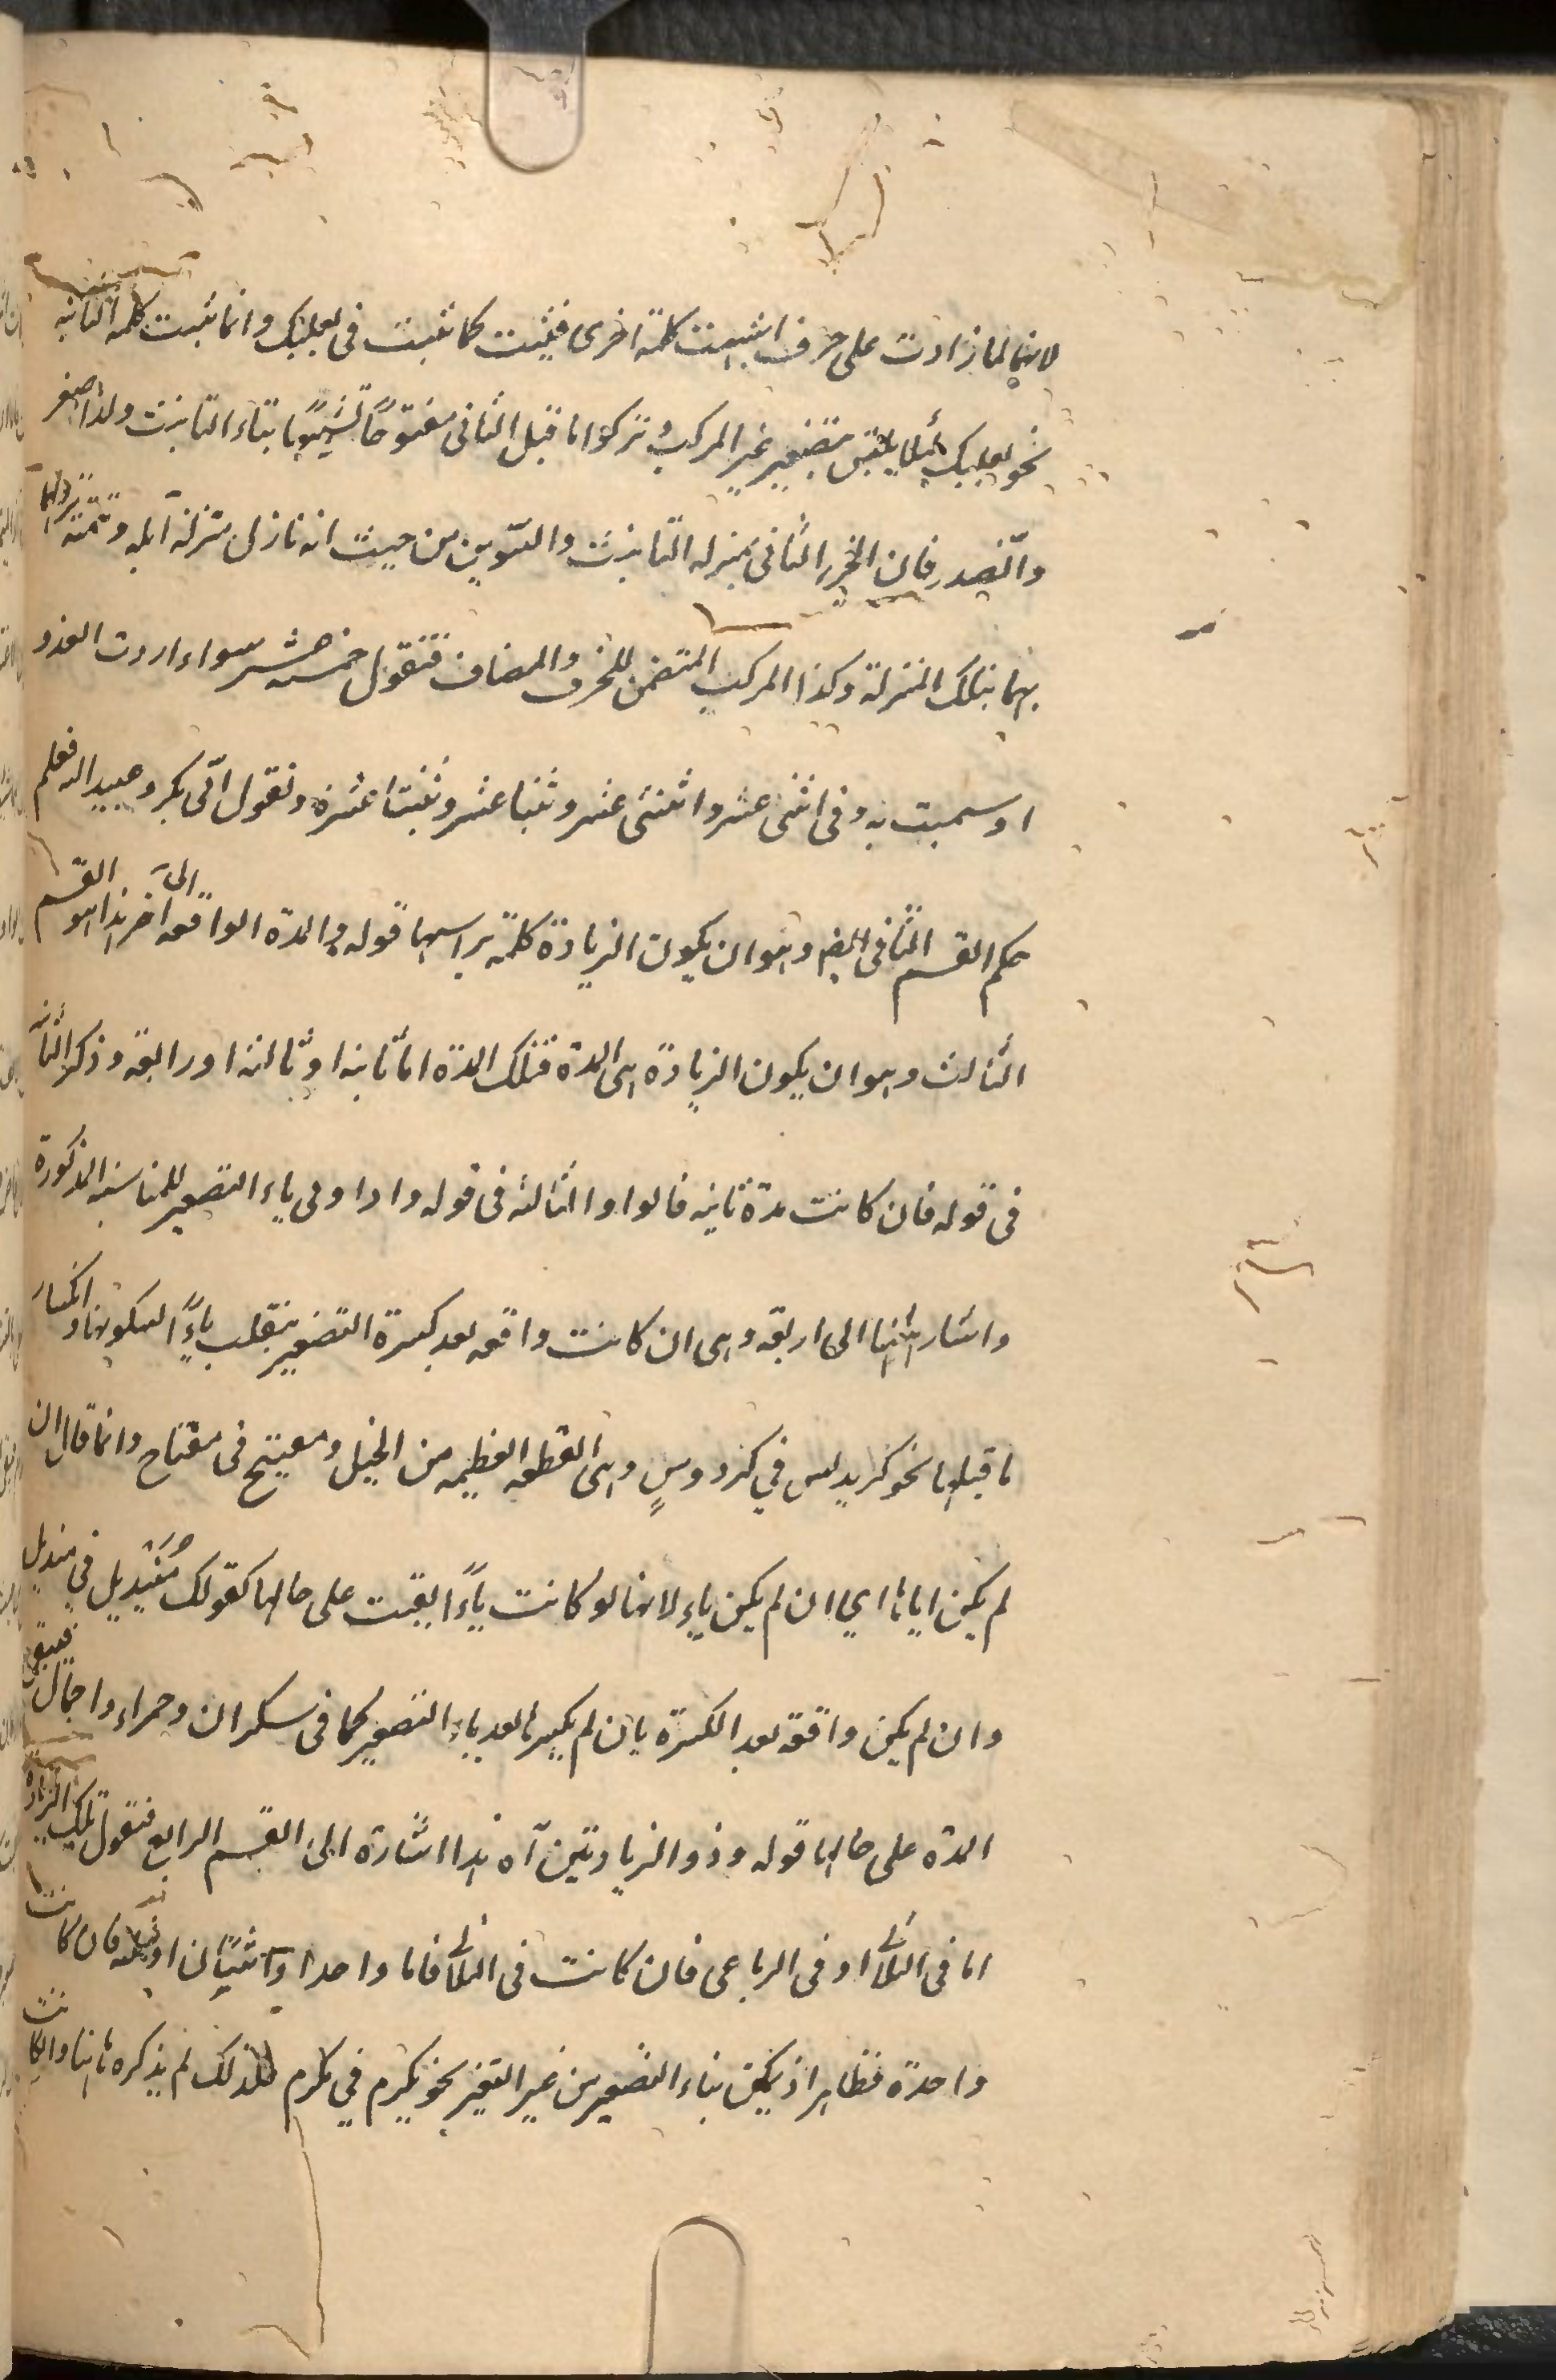 لانها لما زادت على حرف اشبهت كلمة اخرى فثبتت كما ثبتت فى بعلبك وانما ثبتت كلمة الثانية
نحو بعلبك لئلا يلتبس بتصغير غير المركب وتركوا ما قبل الثانى مفتوحًا تشبيهًا بتاء التانيث ولذا صغر
والصدر فان الجزء الثانى بمنزلة التانيث والتنوين من حيث انه نازل منزلة
بهما بتلك المنزلة وكذا المركب المتضمن للحرف والمضاف فتقول خمسة عشر سواء اردت العدد
او سميت به وفى اثنى عشر واثنتى عشر وثنيا عشر وثنيتا عشرة وتقول ابى بكر وعبيد الله فعلم
حكم القسم الثانى ايضا وهو ان يكون الزيادة كلمة براسها قوله والمدة الواقعة الى آخر هذا هو القسم
الثالث وهو ان يكون الزيادة هى المدة فتلك المدة اما ثانية او ثالثة او رابعة وذكر الثانية
فى قوله فان كانت مدة ثانية فالواو والثالثة فى قوله واذا ولى ياء التصغير للمناسبة المذكورة
واشار ههنا الى اربعة وهى ان كانت واقعة بعد كسرة التصغير ينقلب ياءً لسكونها وانكسار
ما قبلها نحو كريديس في كردوسٍ وهى القطعة العظيمة من الخيل ومفيتيح فى مفتاح وانما قال ان
لم يكن اياها اي ان لم يكن ياء لانها لو كانت ياءً ابقيت على حالها كقولك مُنَيْديل في منديل
وان لم يكن واقعة بعد الكسرة بان لم يكسر ما بعد ياء التصغير كما فى سكران وحمراء واجمال فيبقى
المدة على حالها قوله وذو الزيادتين آه هذا اشارة الى القسم الرابع فتقول تلك الزيادة
اما فى الثلاثى او فى الرباعى فان كانت فى الثلاثى فاما واحدا واثنتان او ثلثة فان كانت
واحدة فظاهر اذ يمكن بناء التصغير من غير التغير نحو مكيرم في مكرم فلذلك لم يذكره ههنا وان كانت